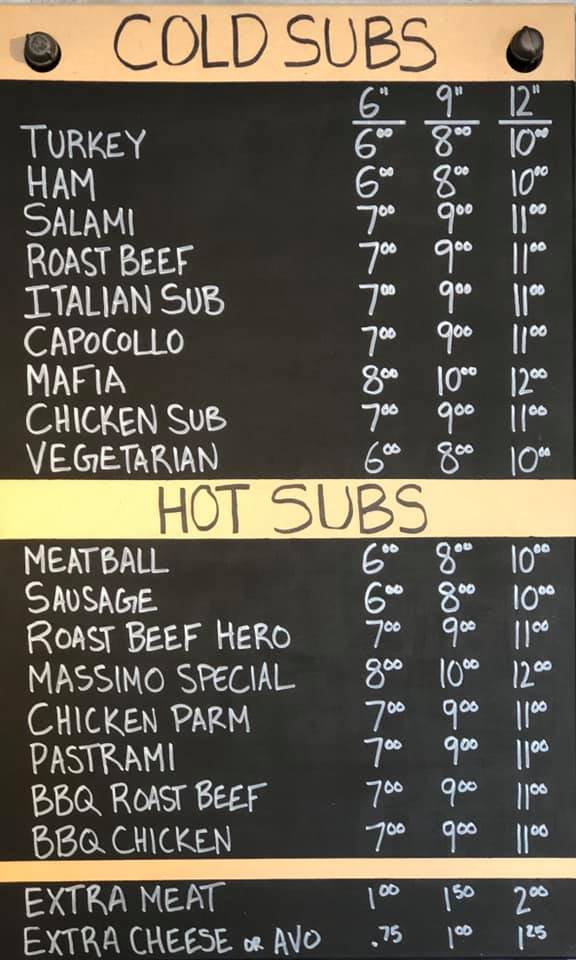 COLD SUBS
6" 9" 12"
TURKEY 6⁰⁰ 8⁰⁰ 10⁰⁰
HAM 6⁰⁰ 8⁰⁰ 10⁰⁰
SALAMI 7⁰⁰ 9⁰⁰ 11⁰⁰
ROAST BEEF 7⁰⁰ 9⁰⁰ 11⁰⁰
ITALIAN SUB 7⁰⁰ 9⁰⁰ 11⁰⁰
CAPOCOLLO 7⁰⁰ 9⁰⁰ 11⁰⁰
MAFIA 8⁰⁰ 10⁰⁰ 12⁰⁰
CHICKEN SUB 7⁰⁰ 9⁰⁰ 11⁰⁰
VEGETARIAN 6⁰⁰ 8⁰⁰ 10⁰⁰
HOT SUBS
MEATBALL 6⁰⁰ 8⁰⁰ 10⁰⁰
SAUSAGE 6⁰⁰ 8⁰⁰ 10⁰⁰
ROAST BEEF HERO 7⁰⁰ 9⁰⁰ 11⁰⁰
MASSIMO SPECIAL 8⁰⁰ 10⁰⁰ 12⁰⁰
CHICKEN PARM 7⁰⁰ 9⁰⁰ 11⁰⁰
PASTRAMI 7⁰⁰ 9⁰⁰ 11⁰⁰
BBQ ROAST BEEF 7⁰⁰ 9⁰⁰ 11⁰⁰
BBQ CHICKEN 7⁰⁰ 9⁰⁰ 11⁰⁰
EXTRA MEAT 1⁰⁰ 1⁵⁰ 2⁰⁰
EXTRA CHEESE OR AVO .75 1⁰⁰ 1²⁵